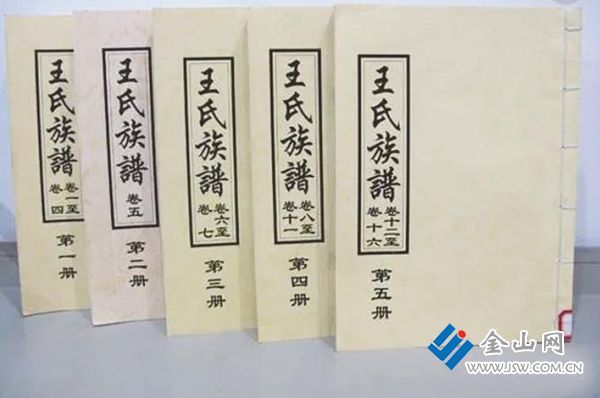 王氏族譜
卷一至
卷四
第一册
王氏族譜
卷五
第二册
王氏族譜
卷六至
卷七
第三册
王氏族譜
卷八至
卷十一
第四册
王氏族譜
卷十二至
卷十六
第五册
金山网
WWW.JSW.COM.CN